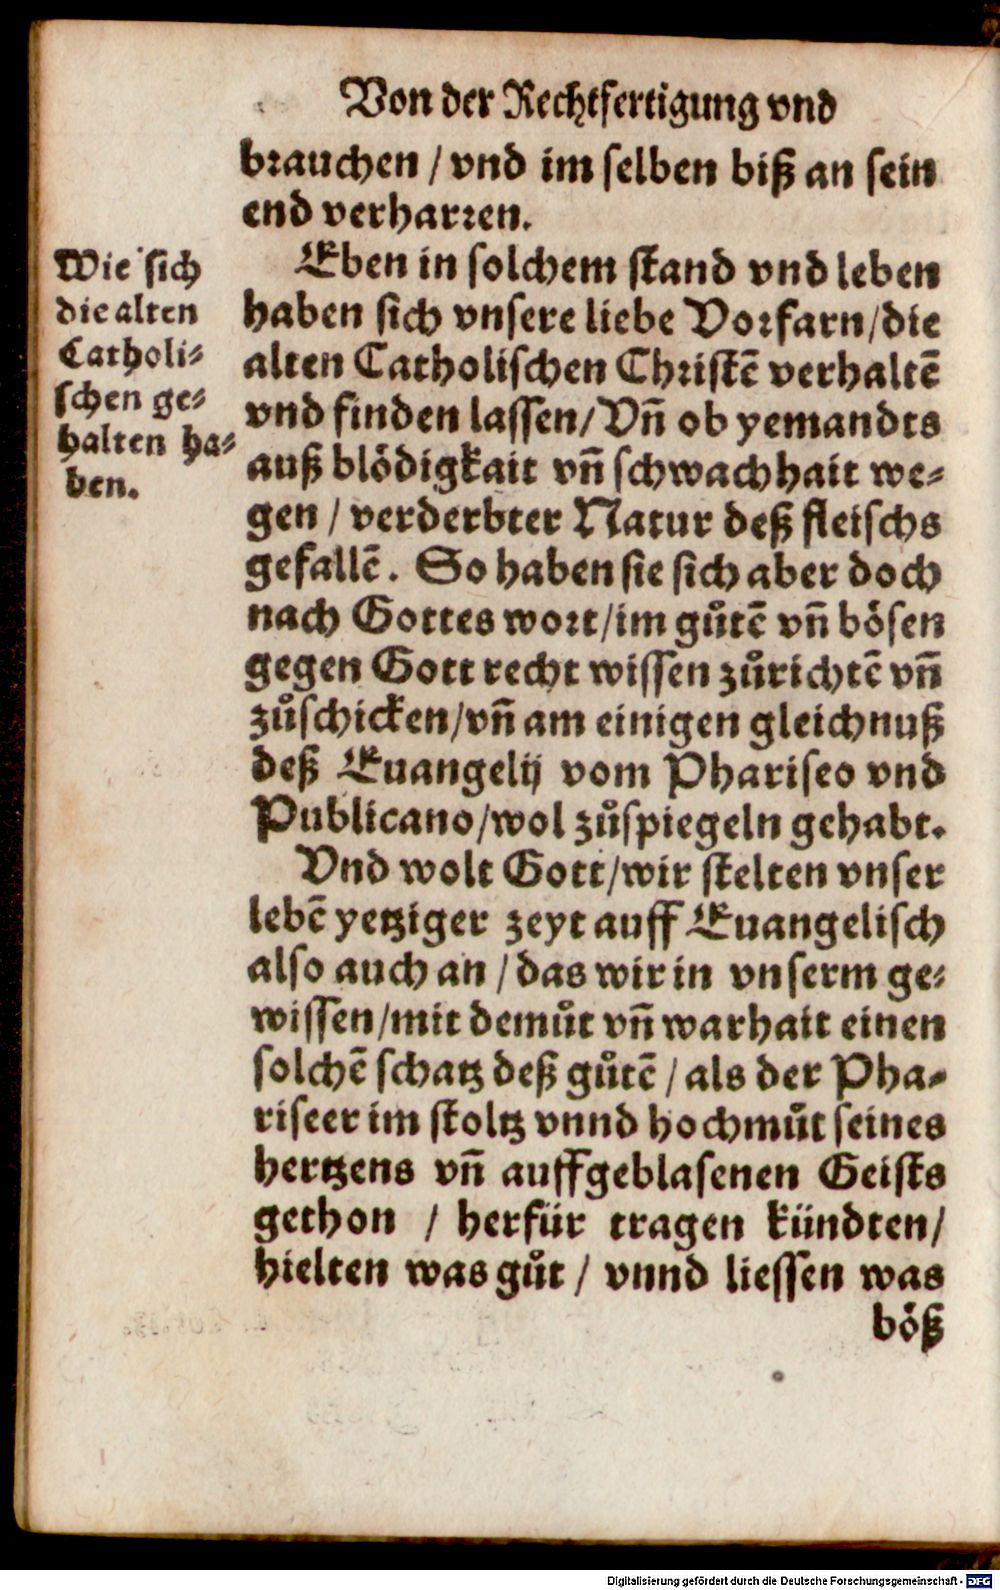 Von der Rechtfertigung vnd
brauchen / vnd im selben biß an sein
end verharren.
Wie sich
die alten
Catholi-
schen ge-
halten ha-
ben.
Eben in solchem stand vnd leben
haben sich vnsere liebe Vorfarn/die
alten Catholischen Christē verhaltē
vnd finden lassen/Vn̄ ob yemandts
auß blödigkait vn̄ schwachhait we-
gen / verderbter Natur deß fleischs
gefallē. So haben sie sich aber doch
nach Gottes wort/im gůtē vn̄ bösen
gegen Gott recht wissen zůrichtē vn̄
zůschicken/vn̄ am einigen gleichnuß
deß Euangelij vom Phariseo vnd
Publicano/wol zůspiegeln gehabt.
Vnd wolt Gott/wir stelten vnser
lebē yetziger zeyt auff Euangelisch
also auch an / das wir in vnserm ge-
wissen/mit demůt vn̄ warhait einen
solchē schatz deß gůtē / als der Pha-
riseer im stoltz vnnd hochmůt seines
hertzens vn̄ auffgeblasenen Geists
gethon / herfür tragen kündten/
hielten was gůt / vnnd liessen was
böß
Digitalisierung gefördert durch die Deutsche Forschungsgemeinschaft - DFG